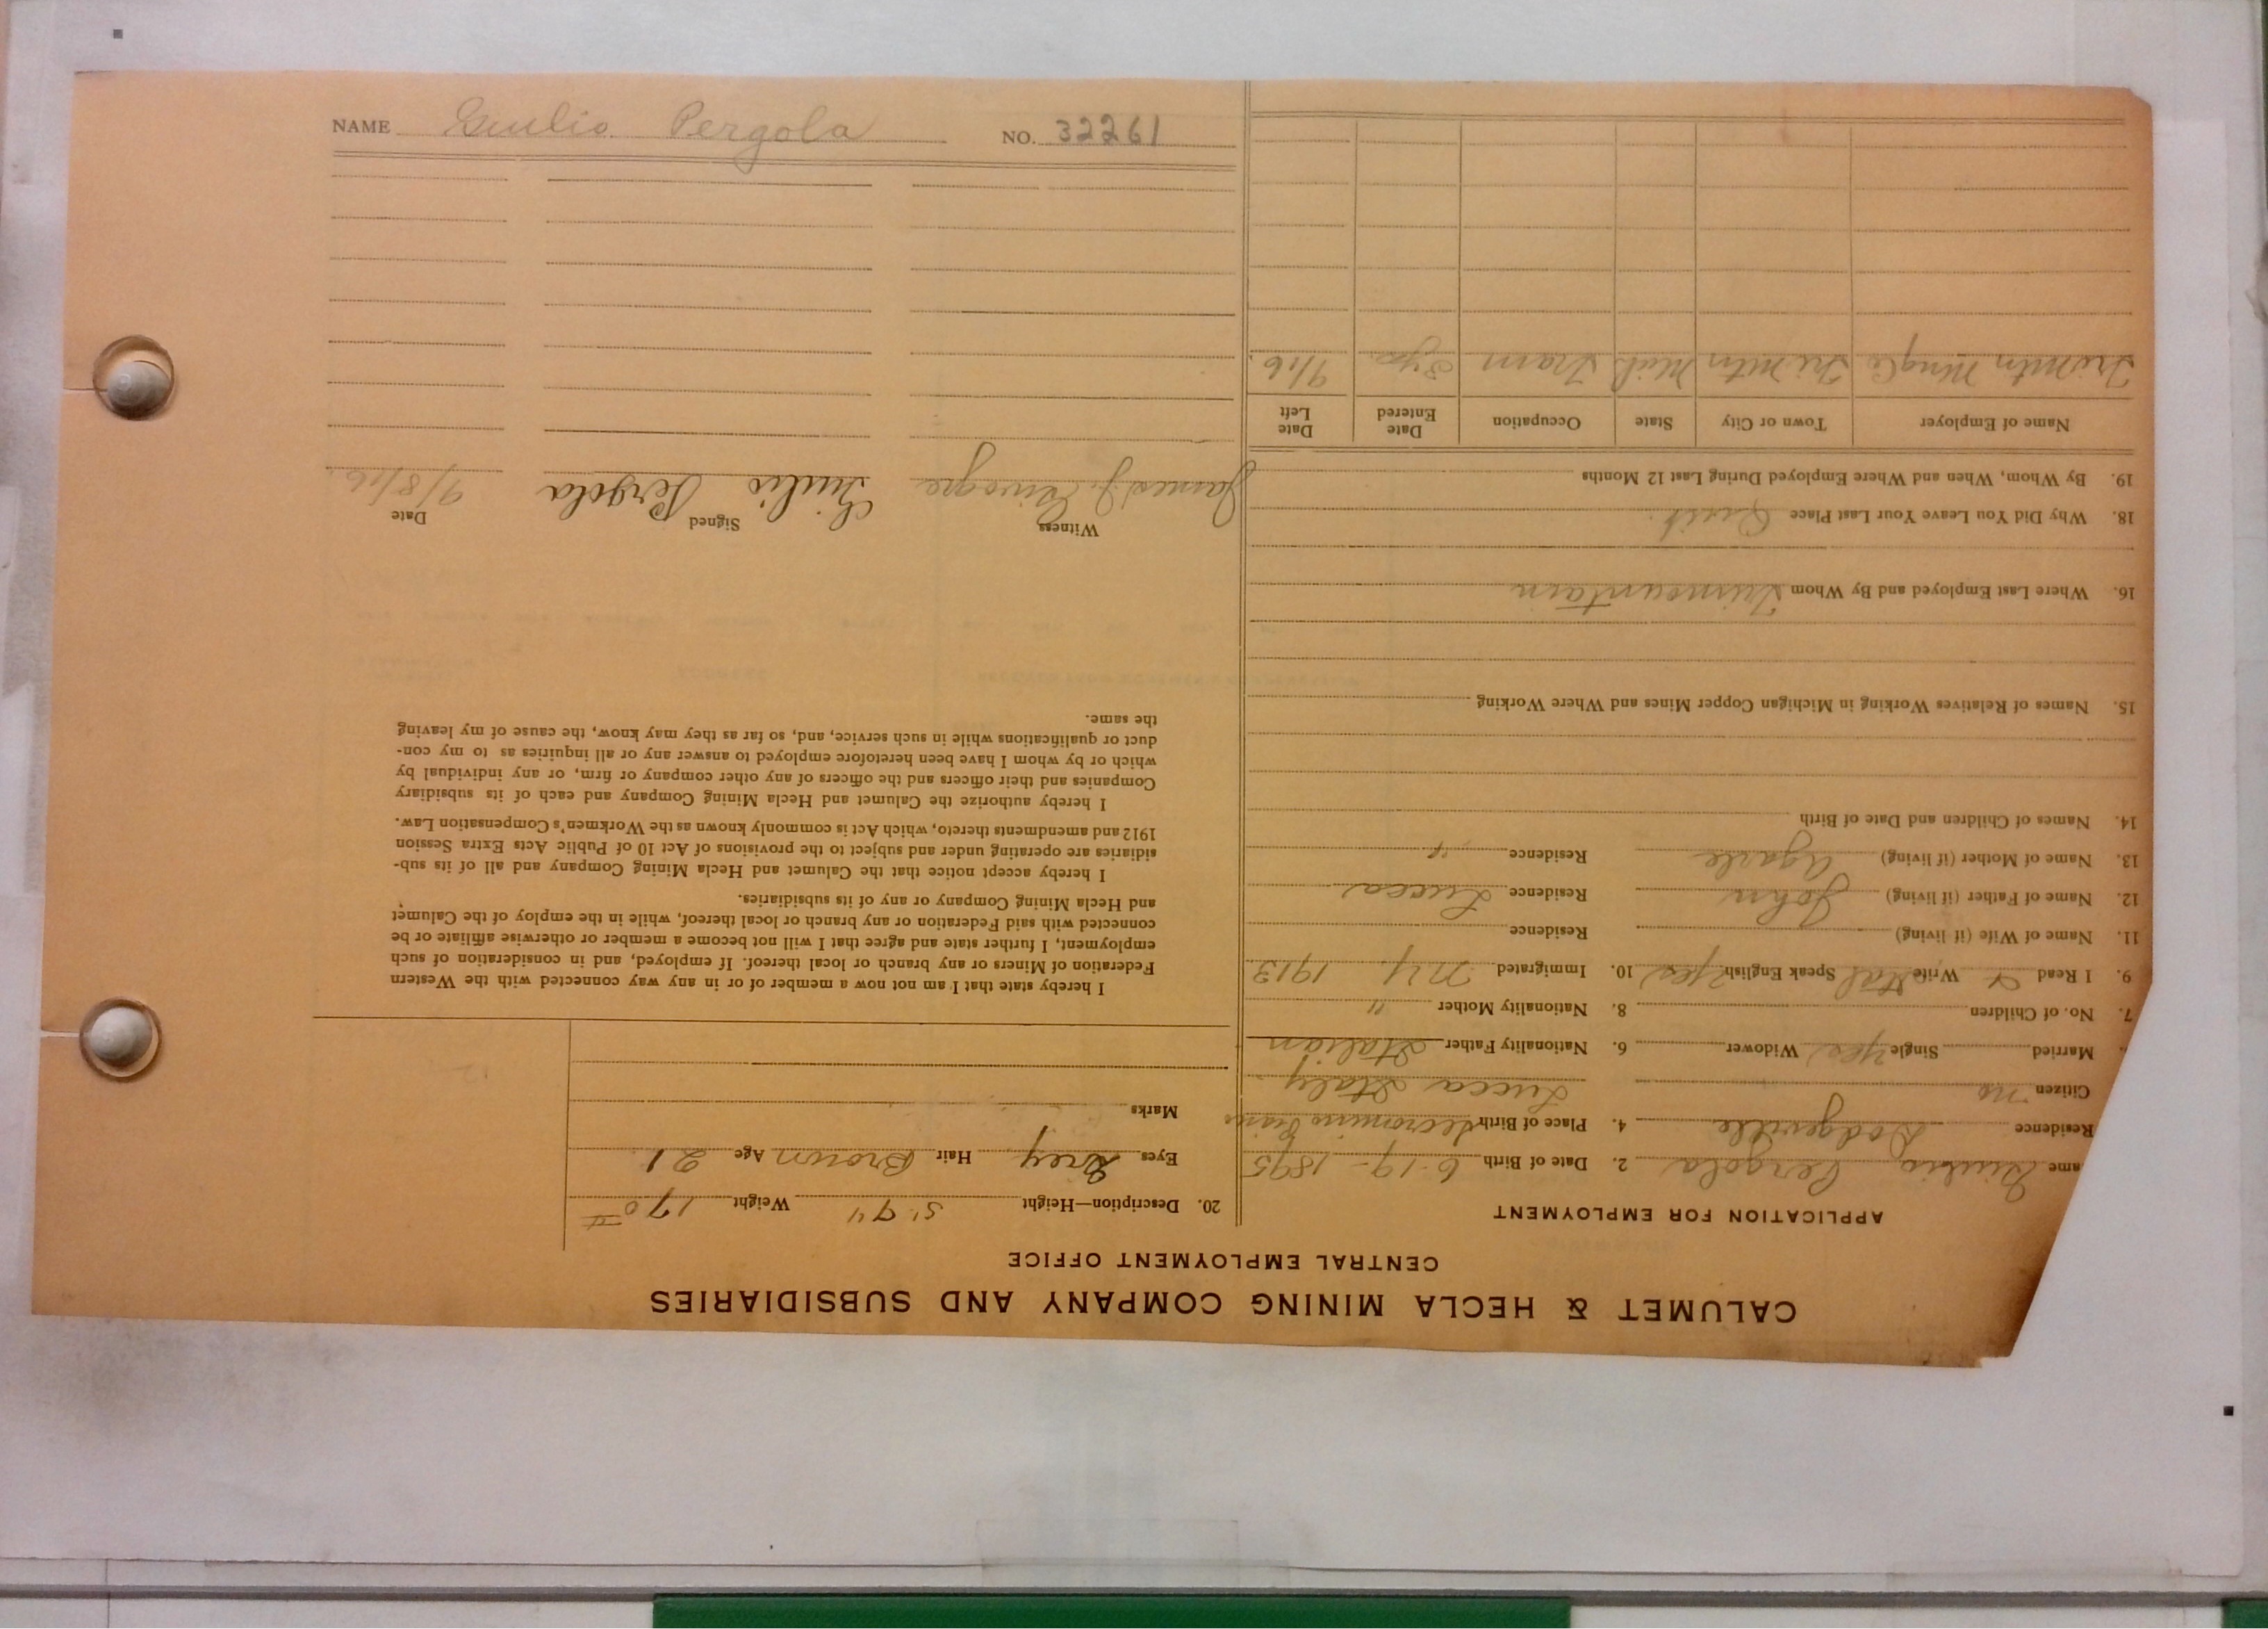 NAME Giulio Pergola NO. 32261
CALUMET & HECLA MINING COMPANY AND SUBSIDIARIES
CENTRAL EMPLOYMENT OFFICE
APPLICATION FOR EMPLOYMENT
ame Giulio Pergola 2. Date of Birth 6-19-1895
Residence Dodgeville 4. Place of Birth
Citizen no Lucca Italy
Married Single yes Widower 6. Nationality Father Italian
7. No. of Children 8. Nationality Mother "
9. I Read & Write Ital Speak English yes 10. Immigrated N.Y. 1913
11. Name of Wife (if living) Residence
12. Name of Father (if living) John Residence Lucca
13. Name of Mother (if living) Residence "
14. Names of Children and Date of Birth
15. Names of Relatives Working in Michigan Copper Mines and Where Working
16. Where Last Employed and By Whom Trimountain
18. Why Did You Leave Your Last Place Quit
19. By Whom, When and Where Employed During Last 12 Months
Name of Employer Town or City State Occupation Date Entered Date Left
Tri Mtn Mng Co Tri Mtn Mich Tram 3 yrs. 9/16
20. Description—Height 5' 9" Weight 170 #
Eyes Grey Hair Brown Age 21
Marks
I hereby state that I am not now a member of or in any way connected with the Western
Federation of Miners or any branch or local thereof. If employed, and in consideration of such
employment, I further state and agree that I will not become a member or otherwise affiliate or be
connected with said Federation or any branch or local thereof, while in the employ of the Calumet
and Hecla Mining Company or any of its subsidiaries.
I hereby accept notice that the Calumet and Hecla Mining Company and all of its sub-
sidiaries are operating under and subject to the provisions of Act 10 of Public Acts Extra Session
1912 and amendments thereto, which Act is commonly known as the Workmen's Compensation Law.
I hereby authorize the Calumet and Hecla Mining Company and each of its subsidiary
Companies and their officers and the officers of any other company or firm, or any individual by
which or by whom I have been heretofore employed to answer any or all inquiries as to my con-
duct or qualifications while in such service, and, so far as they may know, the cause of my leaving
the same.
Witness Signed Date
James J. Giulio Pergola 9/8/16.